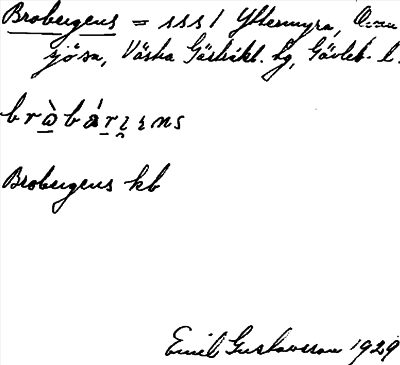 Brobergens = sss 1 Yttermyra, Ovan
sjö sn, Västra Gästrikl. hg, Gävleb. l.
Brobergens kb
Emil Gustavsson 1929